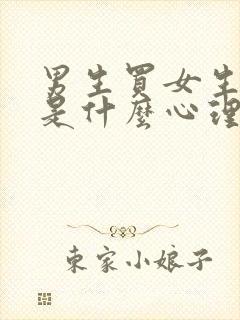 男生買女生
是什麼心理
東家小娘子